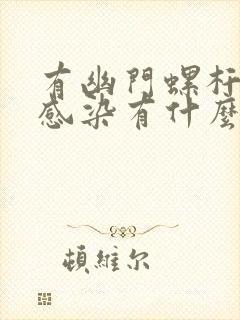 有幽門螺杆
感染有什麼
頓維尔